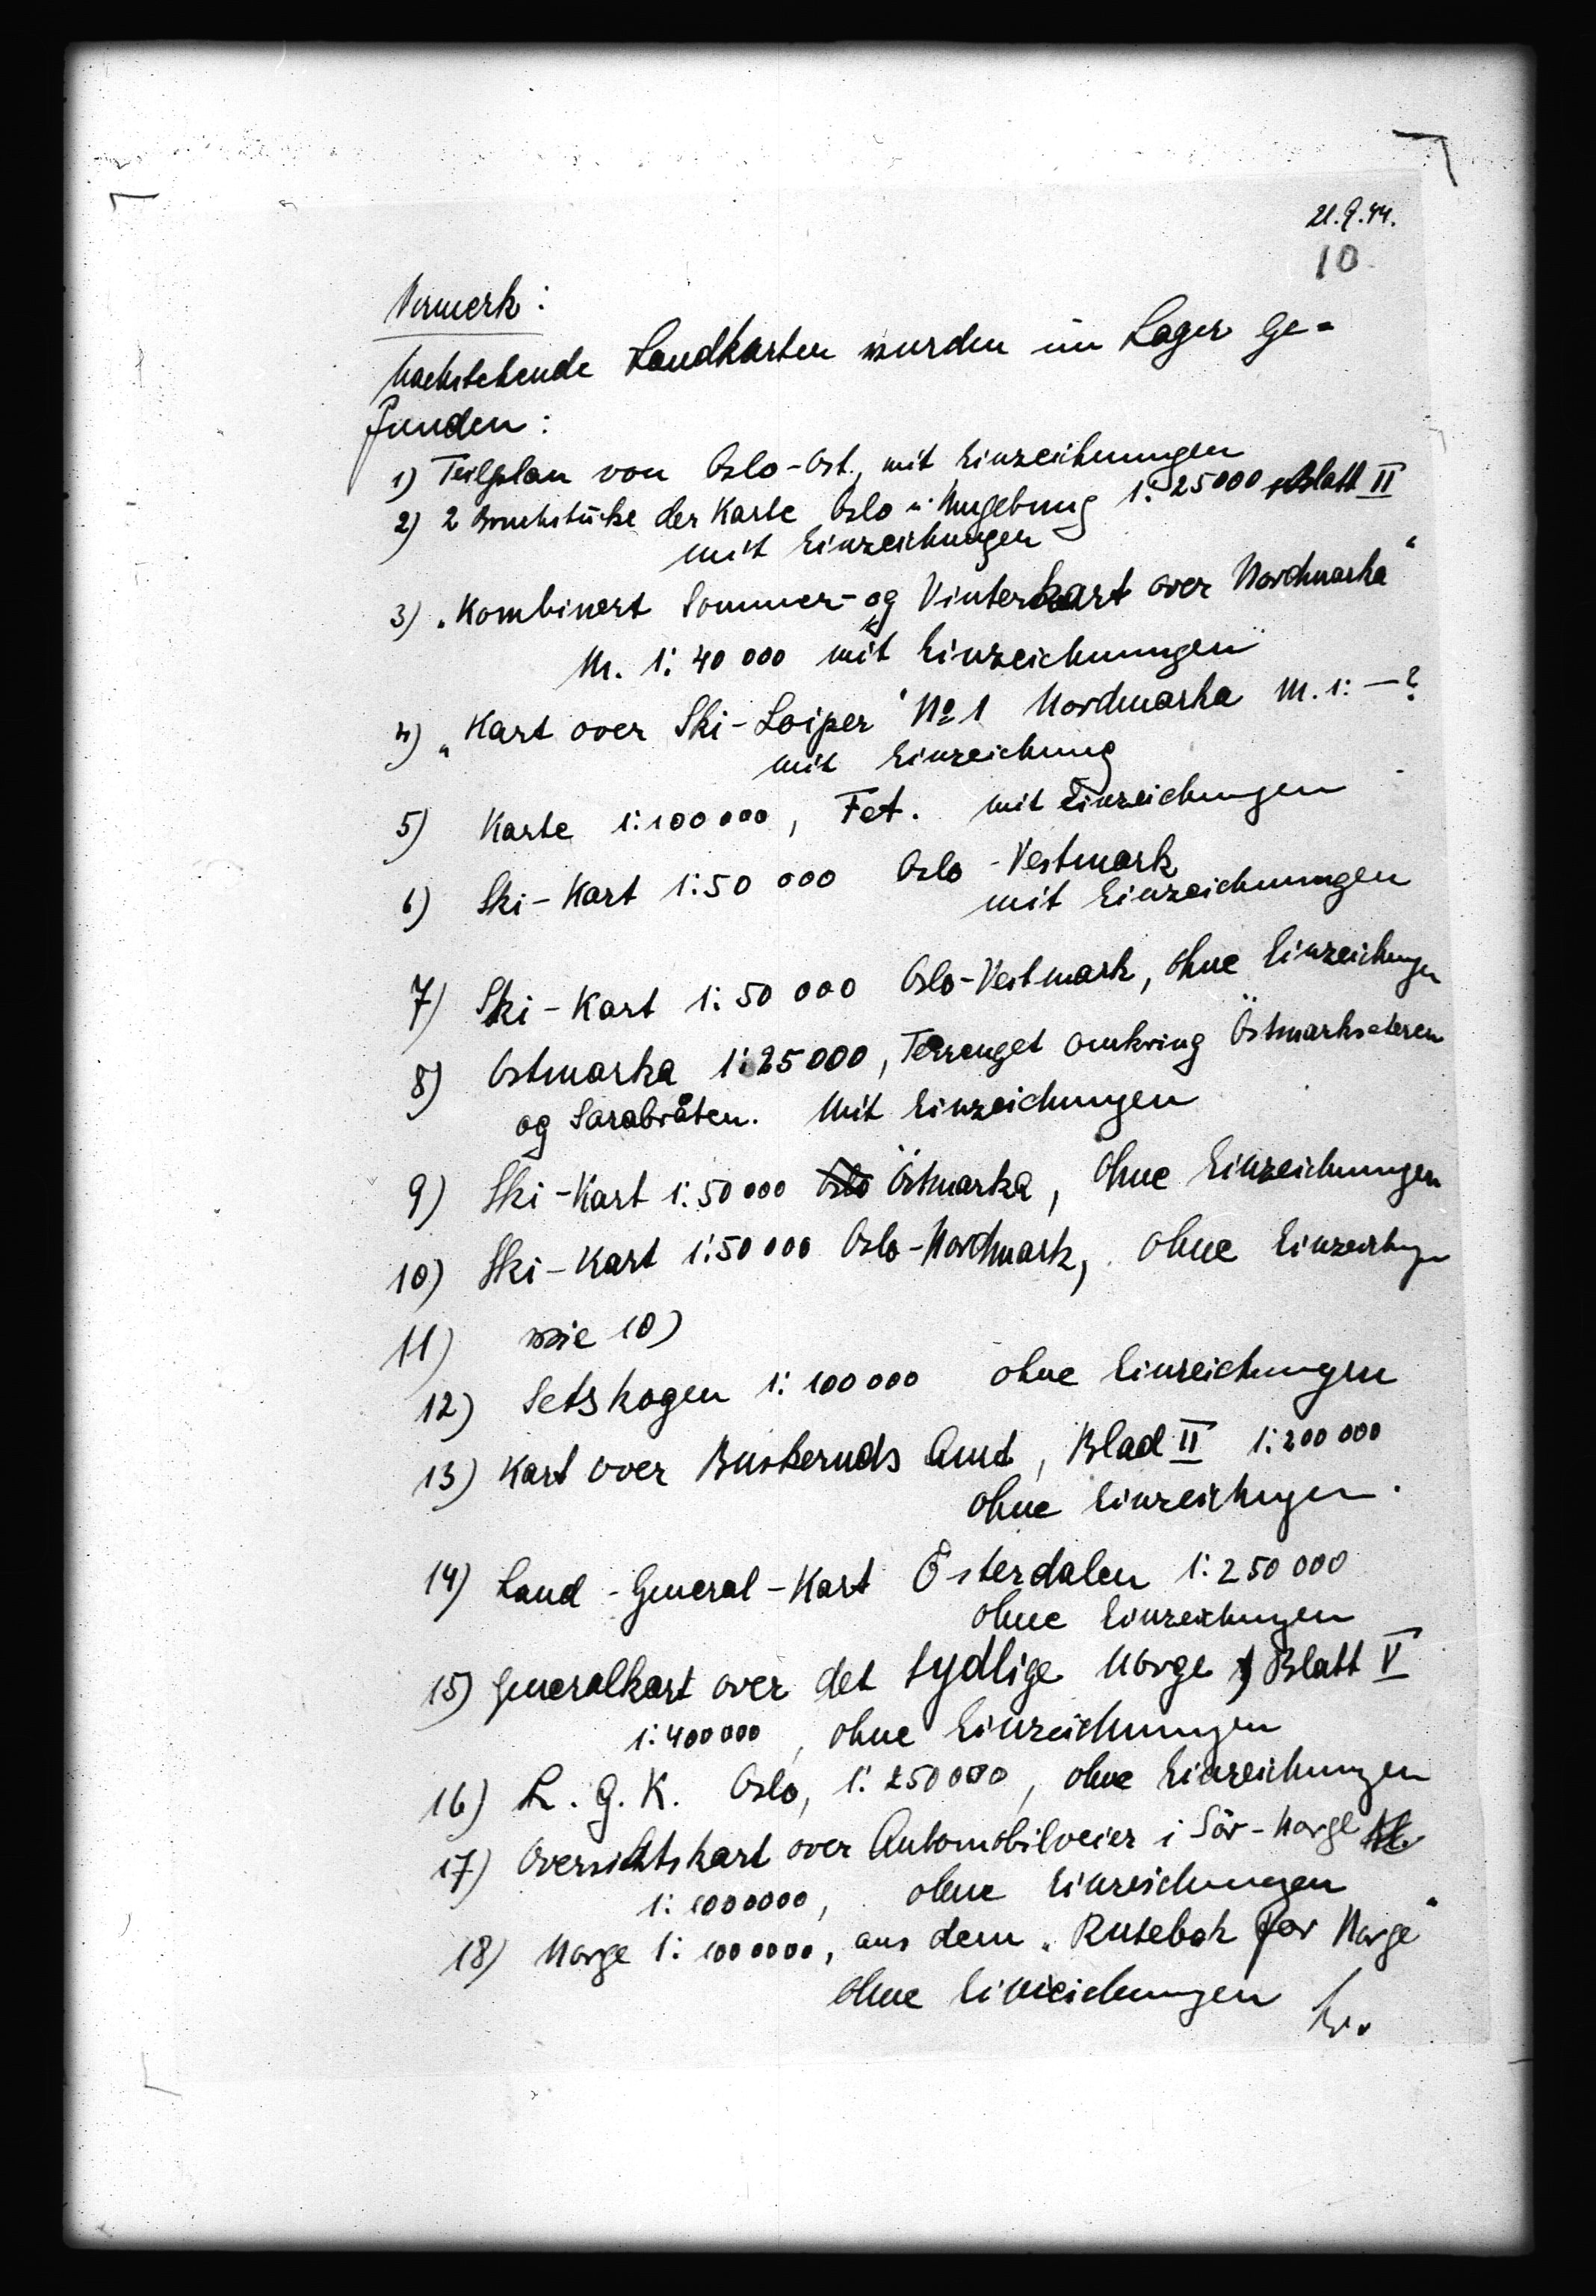 21.9.44.
10.
Vermerk:
Nachstehende Landkarten wurden im Lager ge-
funden:
1) Teilplan von Oslo-Ost, mit Einzeichnungen
2) 2 Bruchstücke der Karte Oslo u Umgebung 1:25000 Blatt II
mit Einzeichungen
3) „Kombinert Sommer- og Vinterkart over Nordmarka"
M. 1:40 000 mit Einzeichnungen
4) „Kart over Ski-Loiper" No 1 Nordmarka M. 1: —?
mit Einzeichung
5) Karte 1:100000, Fet. mit Einzeichungen
6) Ski-Kart 1:50 000 Oslo-Vestmark
mit Einzeichnungen
7) Ski-Kart 1:50 000 Oslo-Vestmark, ohne Einzeichungen
8) Ostmarka 1:25000, Terrenget omkring Östmarkseteren
og Sarabråten. Mit Einzeichungen
9) Ski-Kart 1:50000 Oslo Östmarka, ohne Einzeichnungen
10) Ski-Kart 1:50000 Oslo-Nordmark, ohne Einzeichungen
11) wie 10)
12) Setskogen 1:100000 ohne Einzeichungen
13) Kart over Buskeruds Amt, Blad II 1:200000
ohne Einzeichungen.
14) Land-General-Kart Österdalen 1:250000
ohne Einzeichungen
15) Generalkart over det sydlige Norge, Blatt V
1:400000, ohne Einzeichnungen
16) L.G.K. Oslo, 1:250000, ohne Einzeichungen
17) Oversichtskart over Automobilveier i Sör-Norge
1:1000000, ohne Einzeichungen
18) Norge 1:1000000, aus dem „Rutebok for Norge"
ohne Einzeichungen